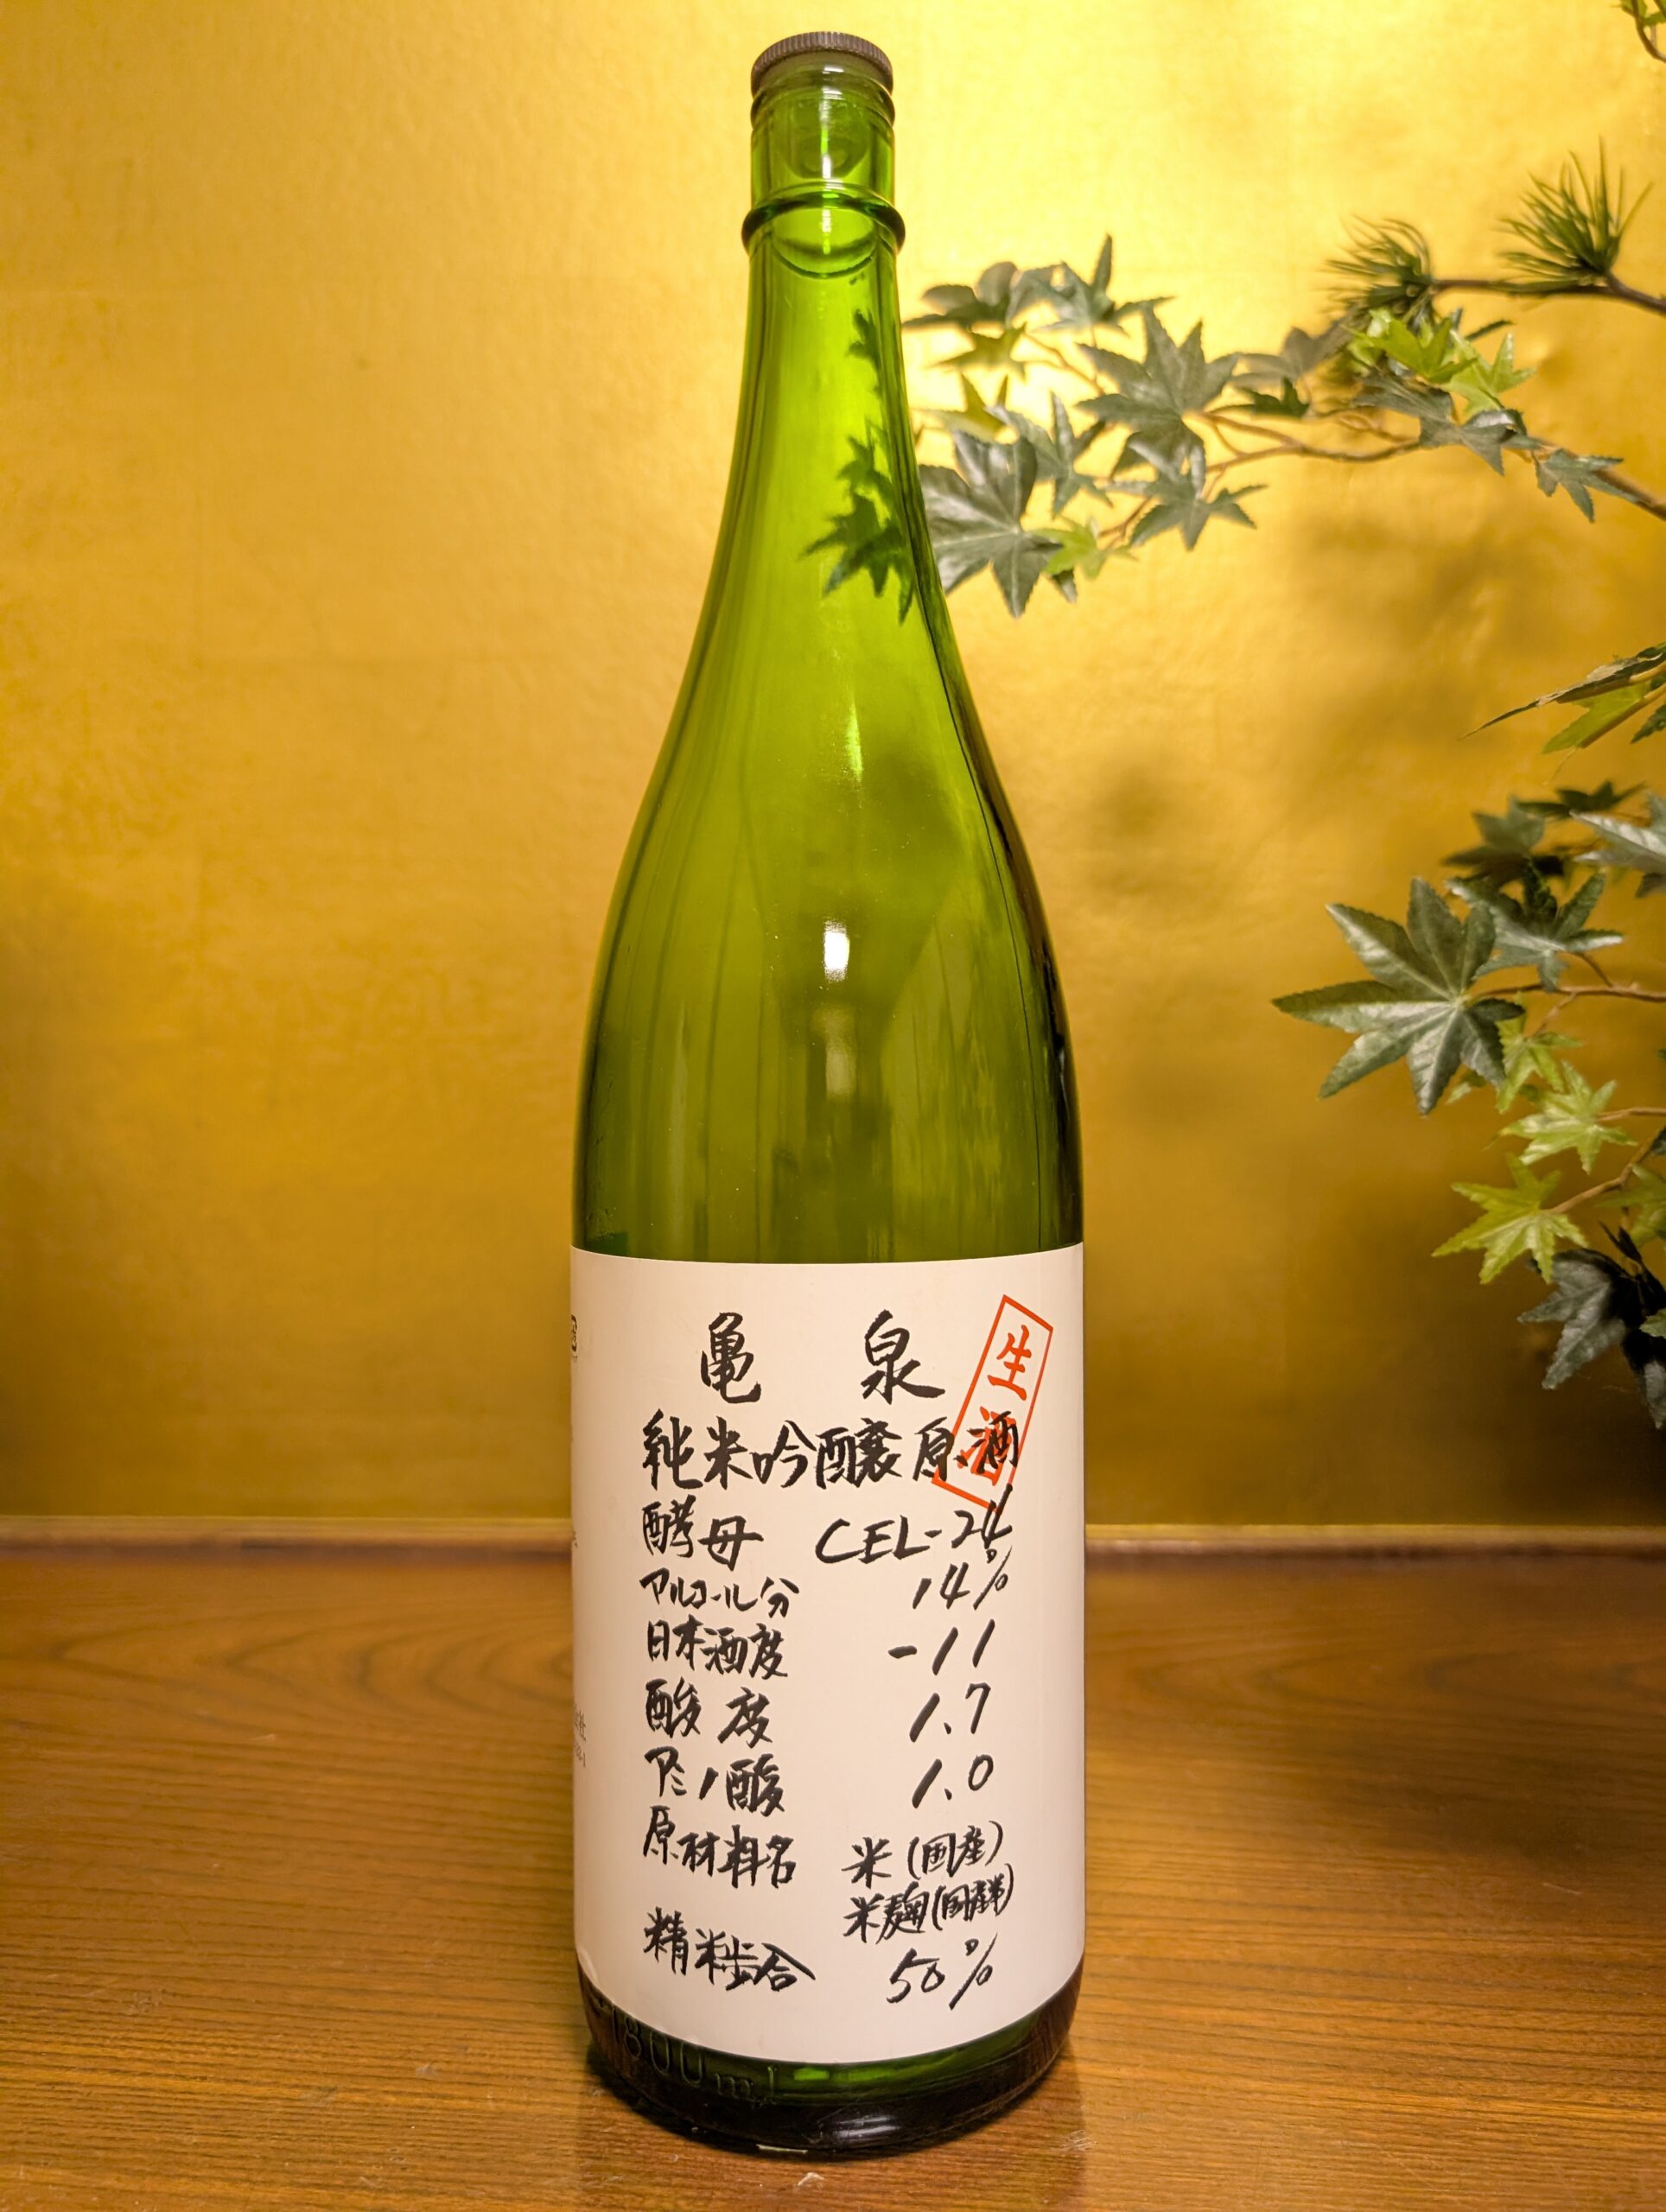 亀泉
生酒
純米吟醸原酒
酵母 CEL-24
アルコール分 14%
日本酒度 -11
酸度 1.7
アミノ酸 1.0
原材料名 米(国産)
米麹(国産米)
精米歩合 50%
1800ml